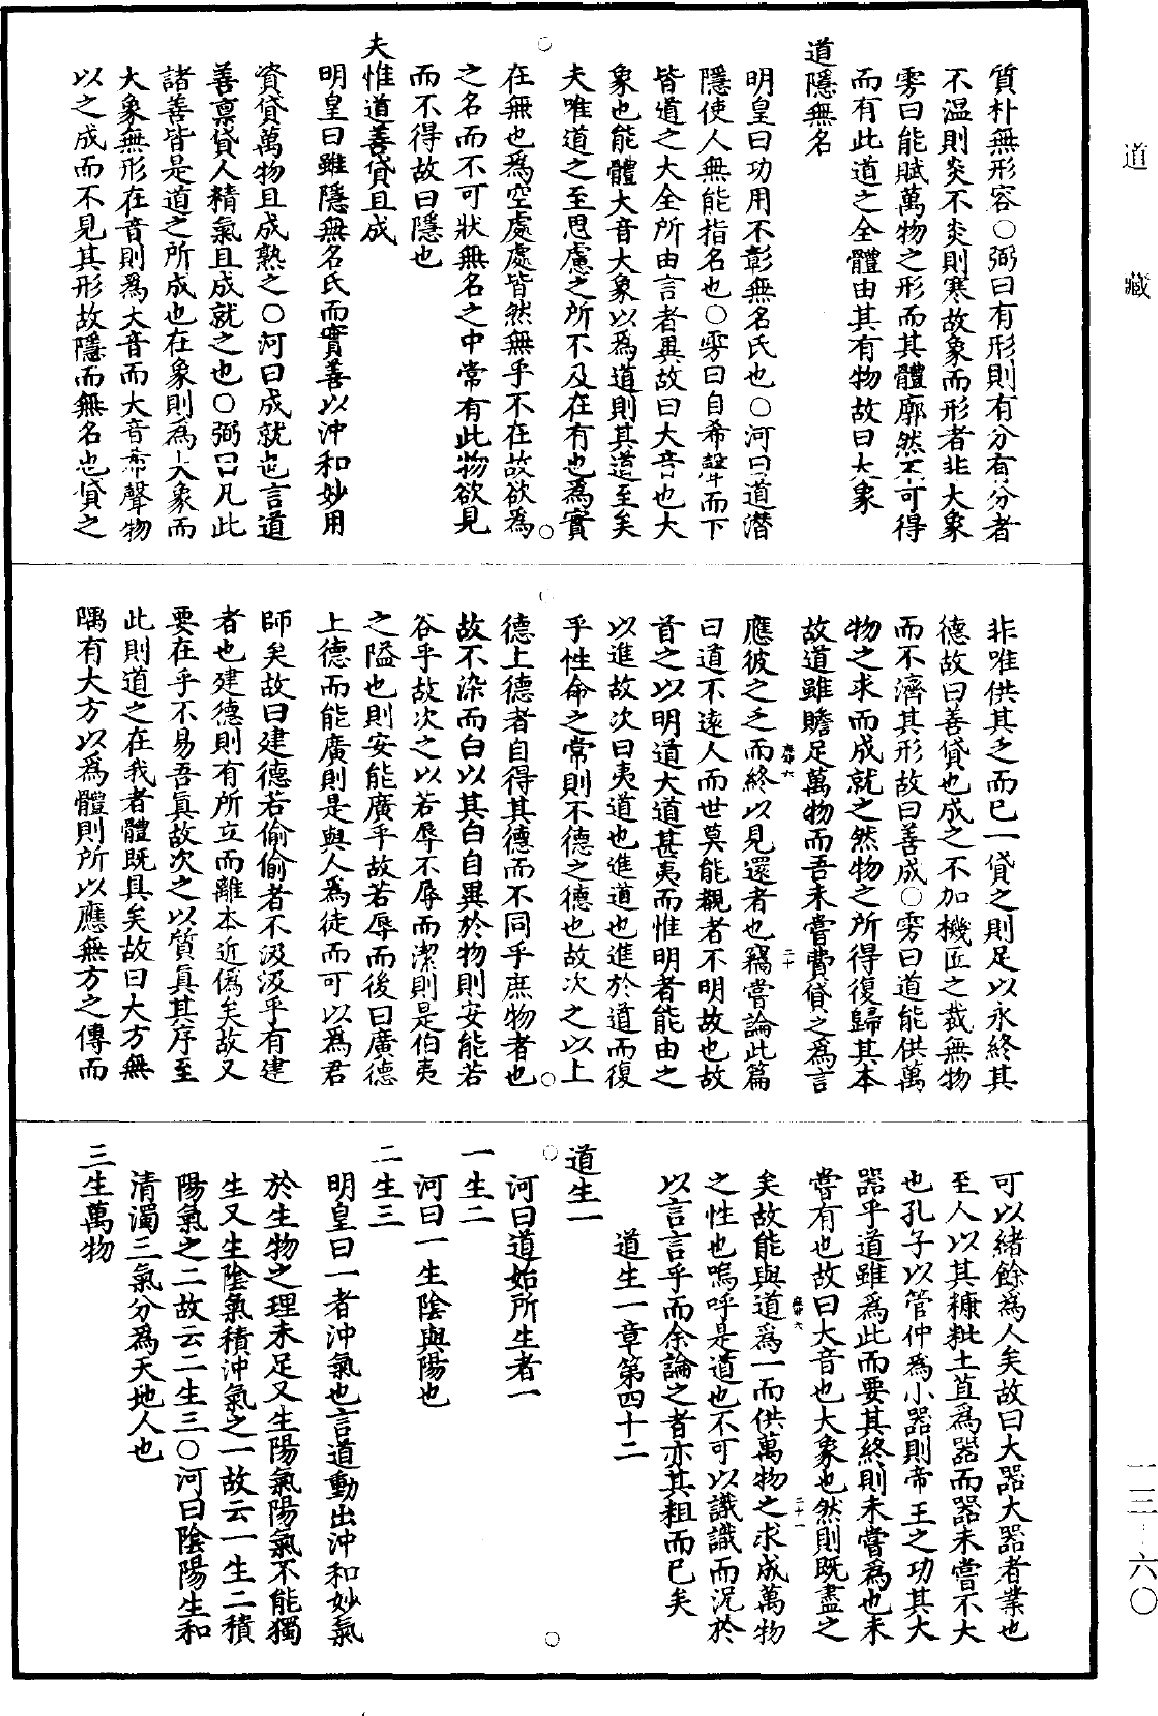 道藏
一三—六〇
質朴無形容○弼曰有形則有分有分者
不溫則炎不炎則寒故象而形者非大象
雱曰能賦萬物之形而其體廓然不可得
而有此道之全體由其有物故曰大象
道隱無名
明皇曰功用不彰無名氏也○河曰道潛
隱使人無能指名也○雱曰自希聲而下
皆道之大全所由言者異故曰大音也大
象也能體大音大象以為道則其道至矣
夫唯道之至思慮之所不及在有也為實
在無也為空處處皆然無乎不在故欲為
之名而不可狀無名之中常有此物欲見
而不得故曰隱也
夫惟道善貸且成
明皇曰雖隱無名氏而實善以沖和妙用
資貸萬物且成熟之○河曰成就也言道
善稟貸人精氣且成就之也○弼曰凡此
諸善皆是道之所成也在象則為大象而
大象無形在音則為大音而大音希聲物
以之成而不見其形故隱而無名也貸之
非唯供其乏而已一貸之則足以永終其
德故曰善貸也成之不加機匠之裁無物
而不濟其形故曰善成○雱曰道能供萬
物之求而成就之然物之所得復歸其本
故道雖贍足萬物而吾未嘗費貸之為言
應彼之乏而終以見還者也竊嘗論此篇
曰道不遠人而世莫能覩者不明故也故
首之以明道大道甚夷而惟明者能由之
以進故次曰夷道也進道也進於道而復
乎性命之常則不德之德也故次之以上
德上德者自得其德而不同乎庶物者也
故不染而白以其白自異於物則安能若
谷乎故次之以若辱不辱而潔則是伯夷
之隘也則安能廣乎故若辱而後曰廣德
上德而能廣則是與人為徒而可以為君
師矣故曰建德若偷偷者不汲汲乎有建
者也建德則有所立而離本近偽矣故又
要在乎不易吾真故次之以質真其序至
此則道之在我者體既具矣故曰大方無
隅有大方以為體則所以應無方之傳而
可以緒餘為人矣故曰大器大器者業也
至人以其糠粃土苴為器而器未嘗不大
也孔子以管仲為小器則帝王之功其大
器乎道雖為此而要其終則未嘗為也未
嘗有也故曰大音也大象也然則既盡之
矣故能與道為一而供萬物之求成萬物
之性也嗚呼是道也不可以識識而況於
以言言乎而余論之者亦其粗而已矣
道生一章第四十二
道生一
河曰道始所生者一
一生二
河曰一生陰與陽也
二生三
明皇曰一者沖氣也言道動出沖和妙氣
於生物之理未足又生陽氣陽氣不能獨
生又生陰氣積沖氣之一故云一生二積
陽氣之二故云二生三○河曰陰陽生和
清濁三氣分為天地人也
三生萬物